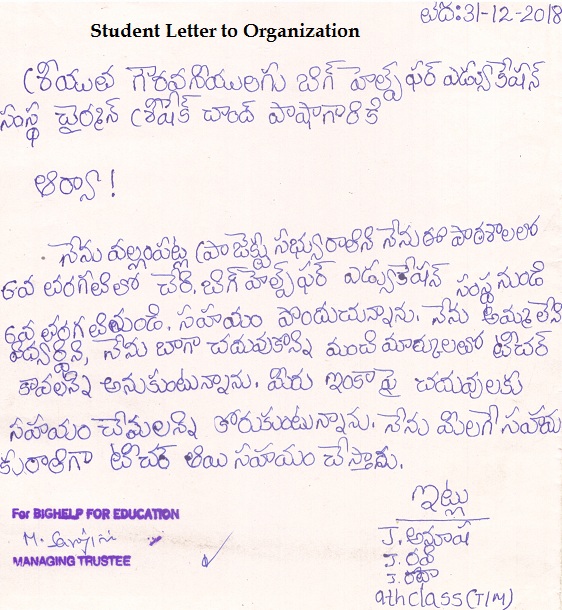 తేది:31-12-2018
Student Letter to Organization
శ్రీయుత గౌరవనీయులగు బిగ్ హెల్ప్ ఫర్ ఎడ్యుకేషన్
సంస్థ చైర్మన్ శ్రీ షేక్ చాంద్ పాషాగారికి
ఆర్యా!
నేను వల్లంపట్ల ప్రాజెక్టు సభ్యురాలిని నేను ఈ పాఠశాలలో
6వ తరగతిలో చేరి. బిగ్ హెల్ప్ ఫర్ ఎడ్యుకేషన్ సంస్థ నుండి
6వ తరగతినుండి. సహయం పొందుచున్నాను. నేను అమ్మ లేని
విద్యార్థిని, నేను బాగా చదువుకొని మంచి మార్కులతో టీచర్
కావలనీ అనుకుంటున్నాను. మీరు ఇంకా పై చదువులకు
సహయం చేయలని కోరుకుంటున్నాను. నేను మీలాగే సహయ
కురాలిగా టీచర్ అయి సహయం చేస్తాను.
ఇట్లు
J.
J.
J.
9th class (T/M)
For BIGHELP FOR EDUCATION
M. Sarojini
MANAGING TRUSTEE